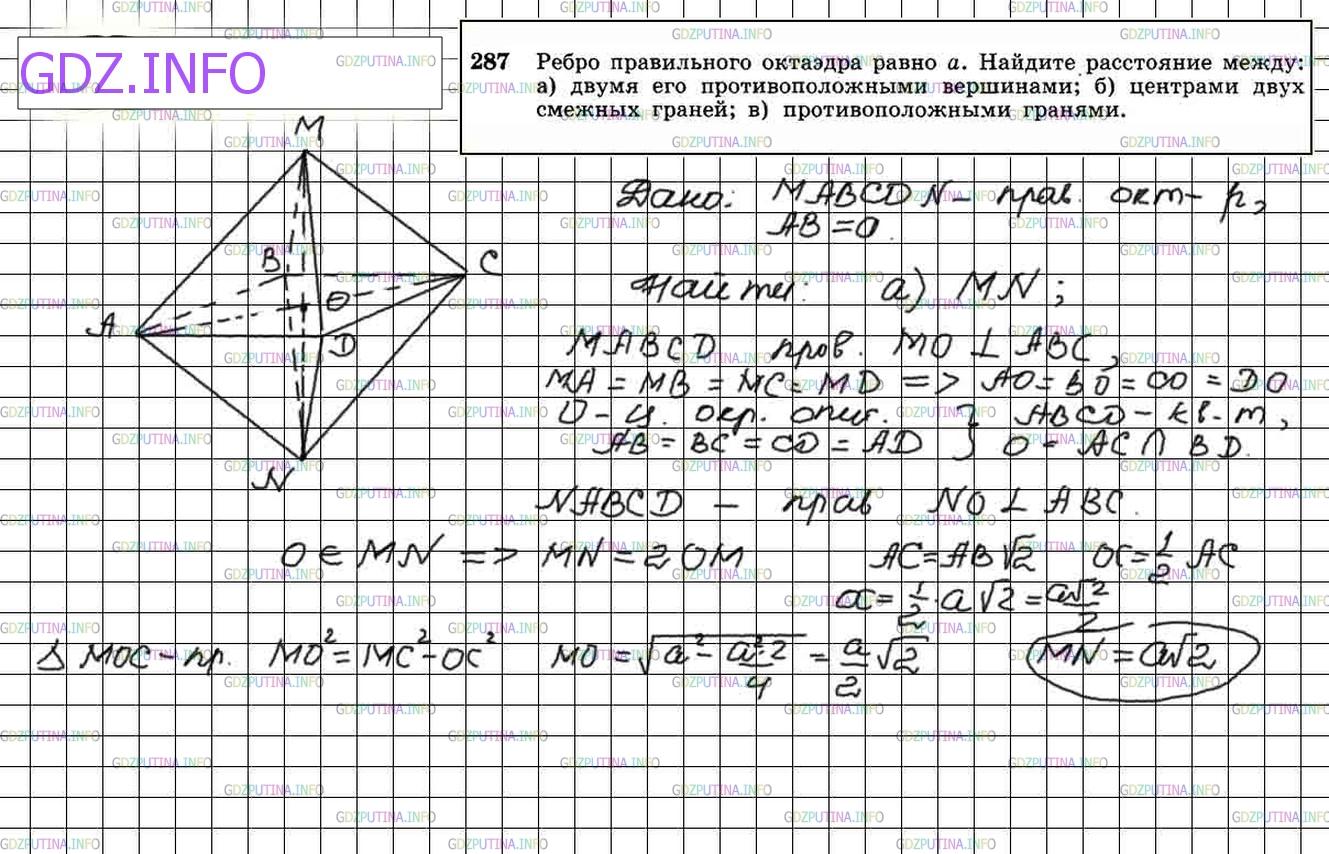 GDZ.INFO
287 Ребро правильного октаэдра равно a. Найдите расстояние между:
а) двумя его противоположными вершинами; б) центрами двух
смежных граней; в) противоположными гранями.
M
B
C
O
A
D
N
Дано: MABCDN – прав. окт-р,
AB = a.
Найти: а) MN;
MABCD прав. MO ⊥ ABC,
MA = MB = MC = MD => AO = BO = CO = DO
O – ц. окр. опис. } ABCD – кв-т,
AB = BC = CD = AD } O = AC ∩ BD.
NABCD – прав NO ⊥ ABC.
O ∈ MN => MN = 2OM AC = AB√2 OC = 1/2 AC
OC = 1/2 · a√2 = a√2/2
Δ MOC – пр. MO² = MC² – OC² MO = √(a² – a²·2/4) = a/2 √2 MN = a√2
GDZPUTINA.INFO